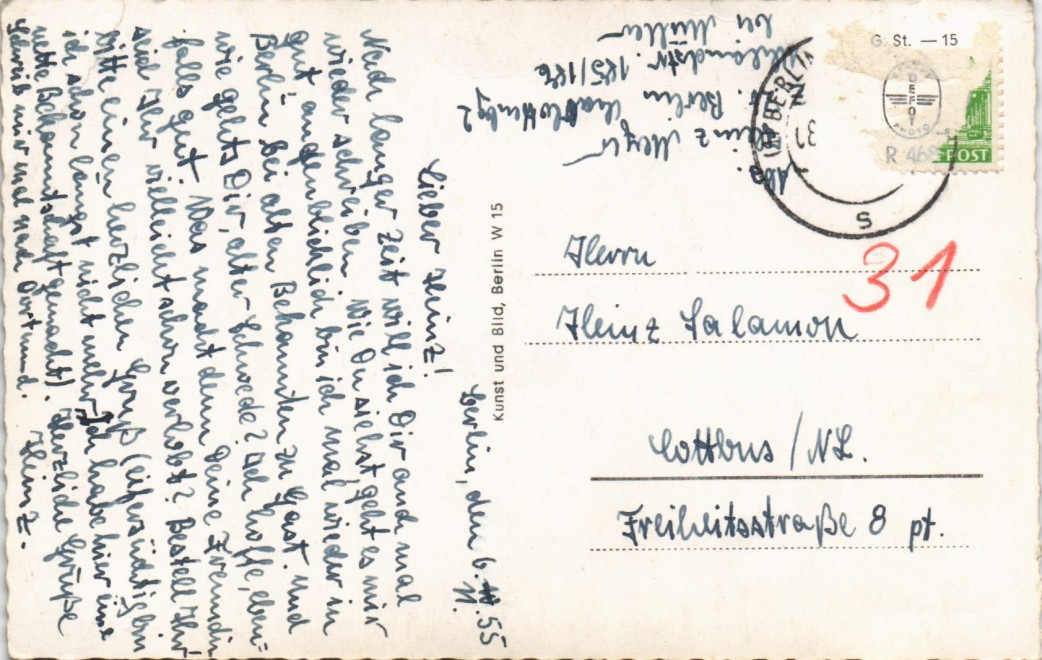 Berlin, den 6.11.55
Lieber Heinz!
Nach langer Zeit will ich Dir auch mal
wieder schreiben. Wie Du siehst, geht es mir
gut, augenblicklich bin ich mal wieder in
Berlin bei alten Bekannten zu Gast. Und
wie gehts Dir, alter Schwede? Ich hoffe, eben=
falls gut. Was macht denn Deine Freundin
seid Ihr vielleicht schon verlobt? Bestell Ihr
bitte einen herzlichen Gruß (eifersüchtig bin
ich schon längst nicht mehr, ich habe hier eine
nette Bekanntschaft gemacht). Herzliche Grüße
Schreib mir mal nach Dortmund. Heinz.
Kunst und Bild, Berlin W 15
Abs.
Heinz Meyer
Berlin Charlottenburg 2
185/186
bei Müller
G. St. — 15
DEFOT
PHOTO
R 468
POST
BERLIN
31
Herrn
Heinz Salamon
Cottbus /NL.
Freiheitsstraße 8 pt.